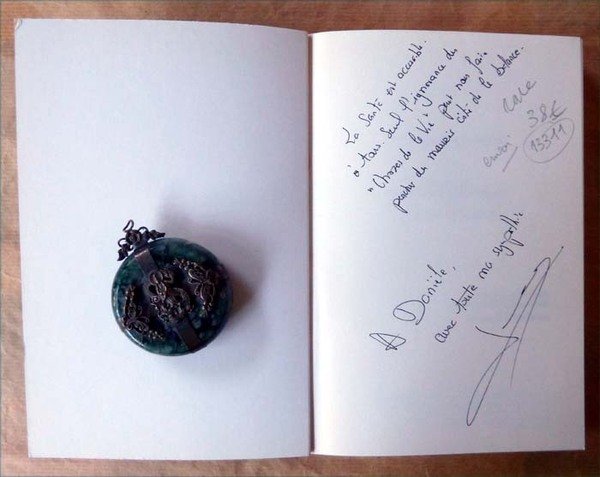 La Santé est accessible
à tous. Seul l'ignorance des
"Choses de la Vie" peut nous faire
pencher du mauvais côté de la balance.
rare
38€
13311
envoi
A Danièle,
avec toute ma sympathie